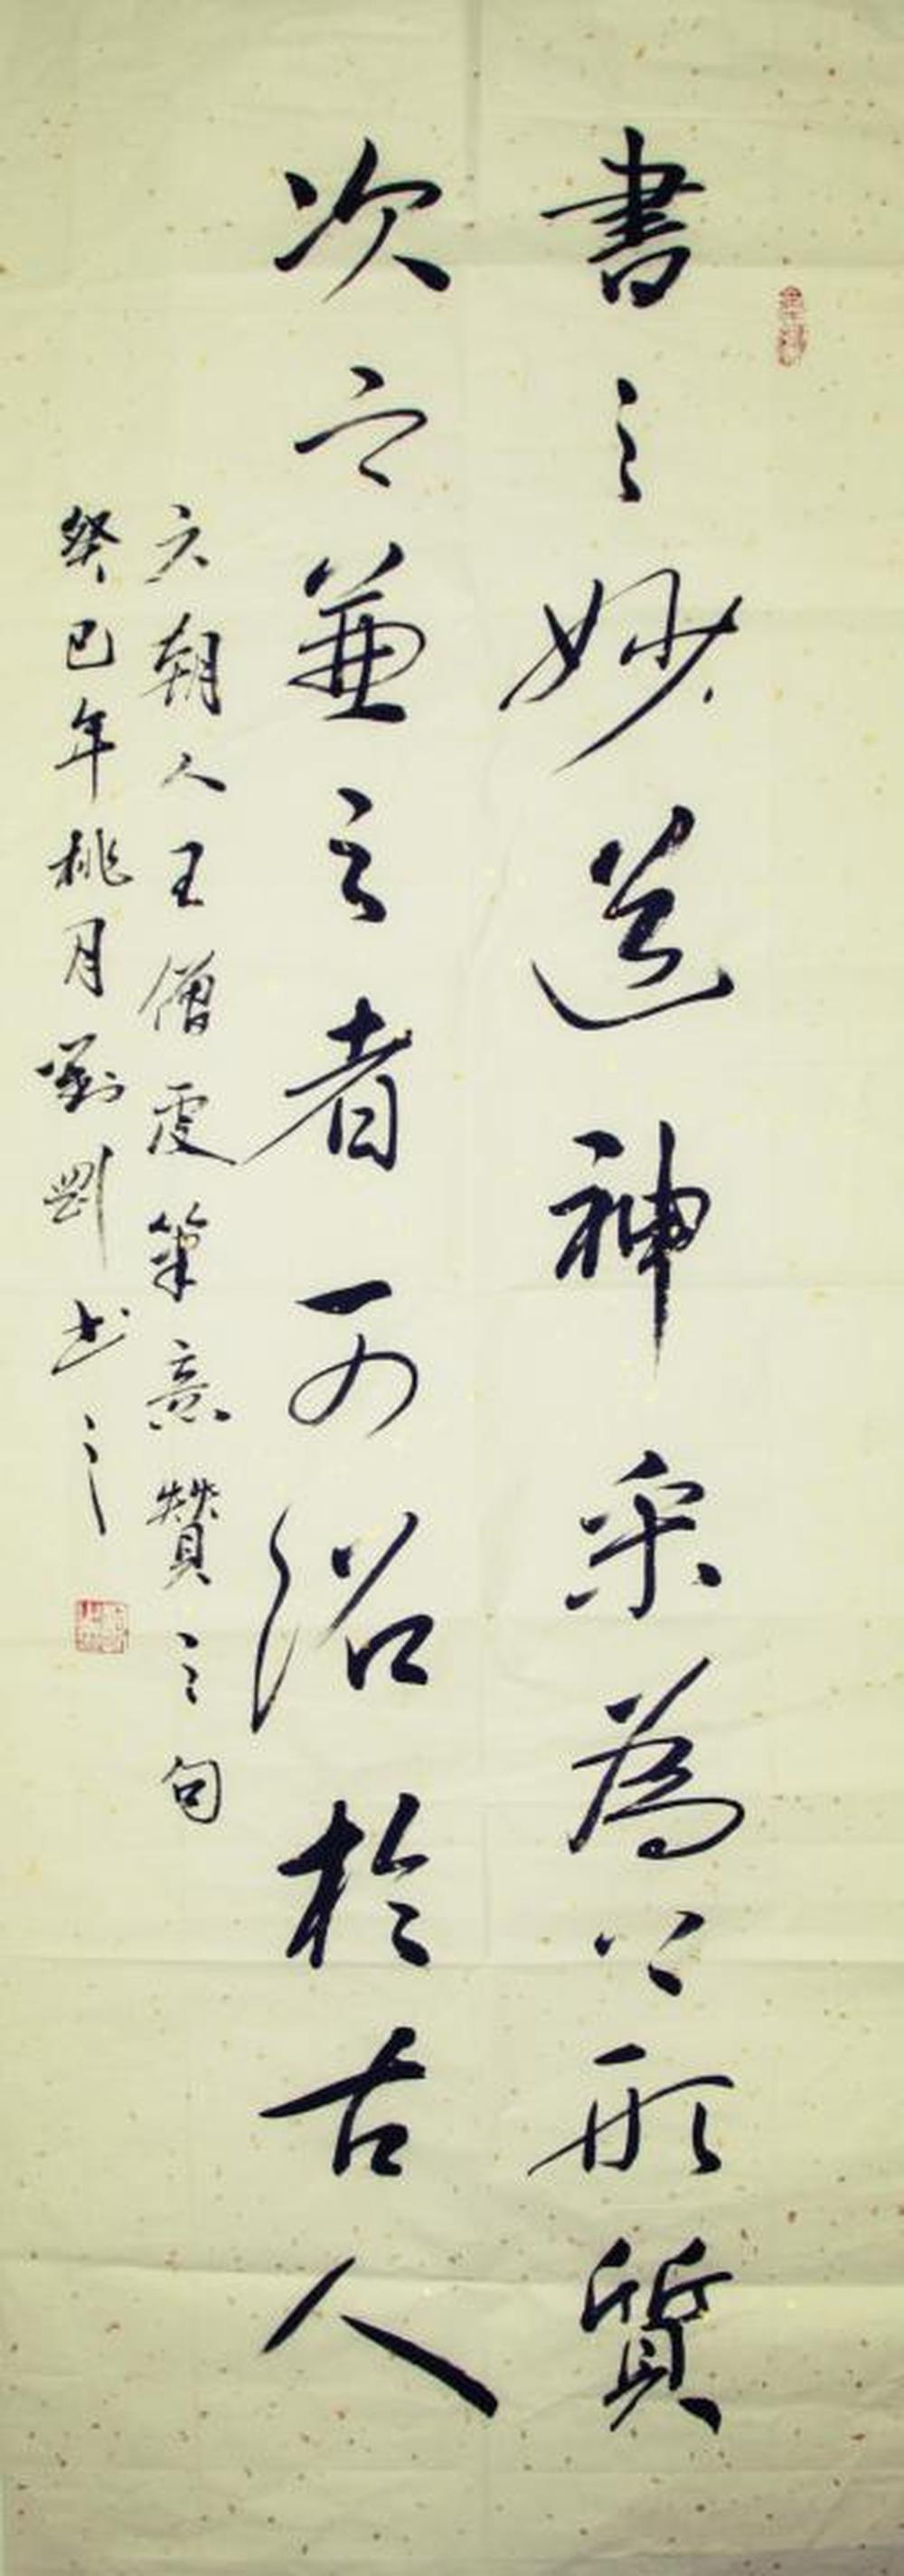 書之妙道神采為上形質
次之兼之者可紹於古人
六朝人王僧虔筆意贊之句
癸巳年桃月劉剛書之